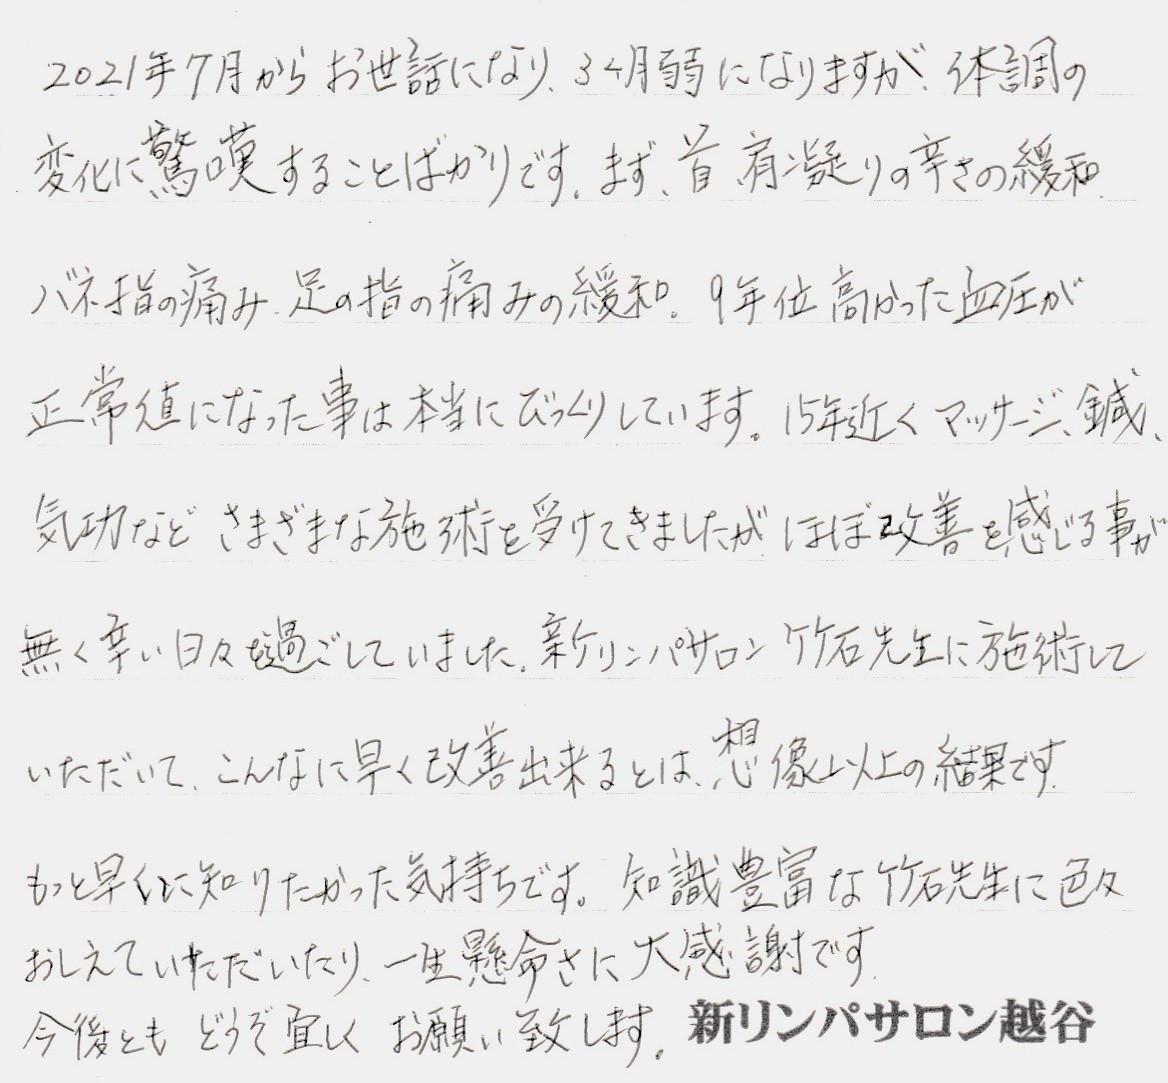 2021年7月からお世話になり、3ヶ月弱になりますが、体調の
変化に驚嘆することばかりです。まず、首、肩凝りの辛さの緩和、
バネ指の痛み、足の指の痛みの緩和。9年位高かった血圧が
正常値になった事は本当にびっくりしています。15年近くマッサージ、鍼、
気功など さまざまな施術を受けてきましたが ほぼ改善を感じる事が
無く辛い日々を過ごしていました。新リンパサロン 竹石先生に施術して
いただいて、こんなに早く改善出来るとは、想像以上の結果です。
もっと早くに知りたかった気持ちです。知識豊富な竹石先生に色々
おしえていただいたり、一生懸命さに大感謝です。
今後とも どうぞ宜しく お願い致します。 新リンパサロン越谷